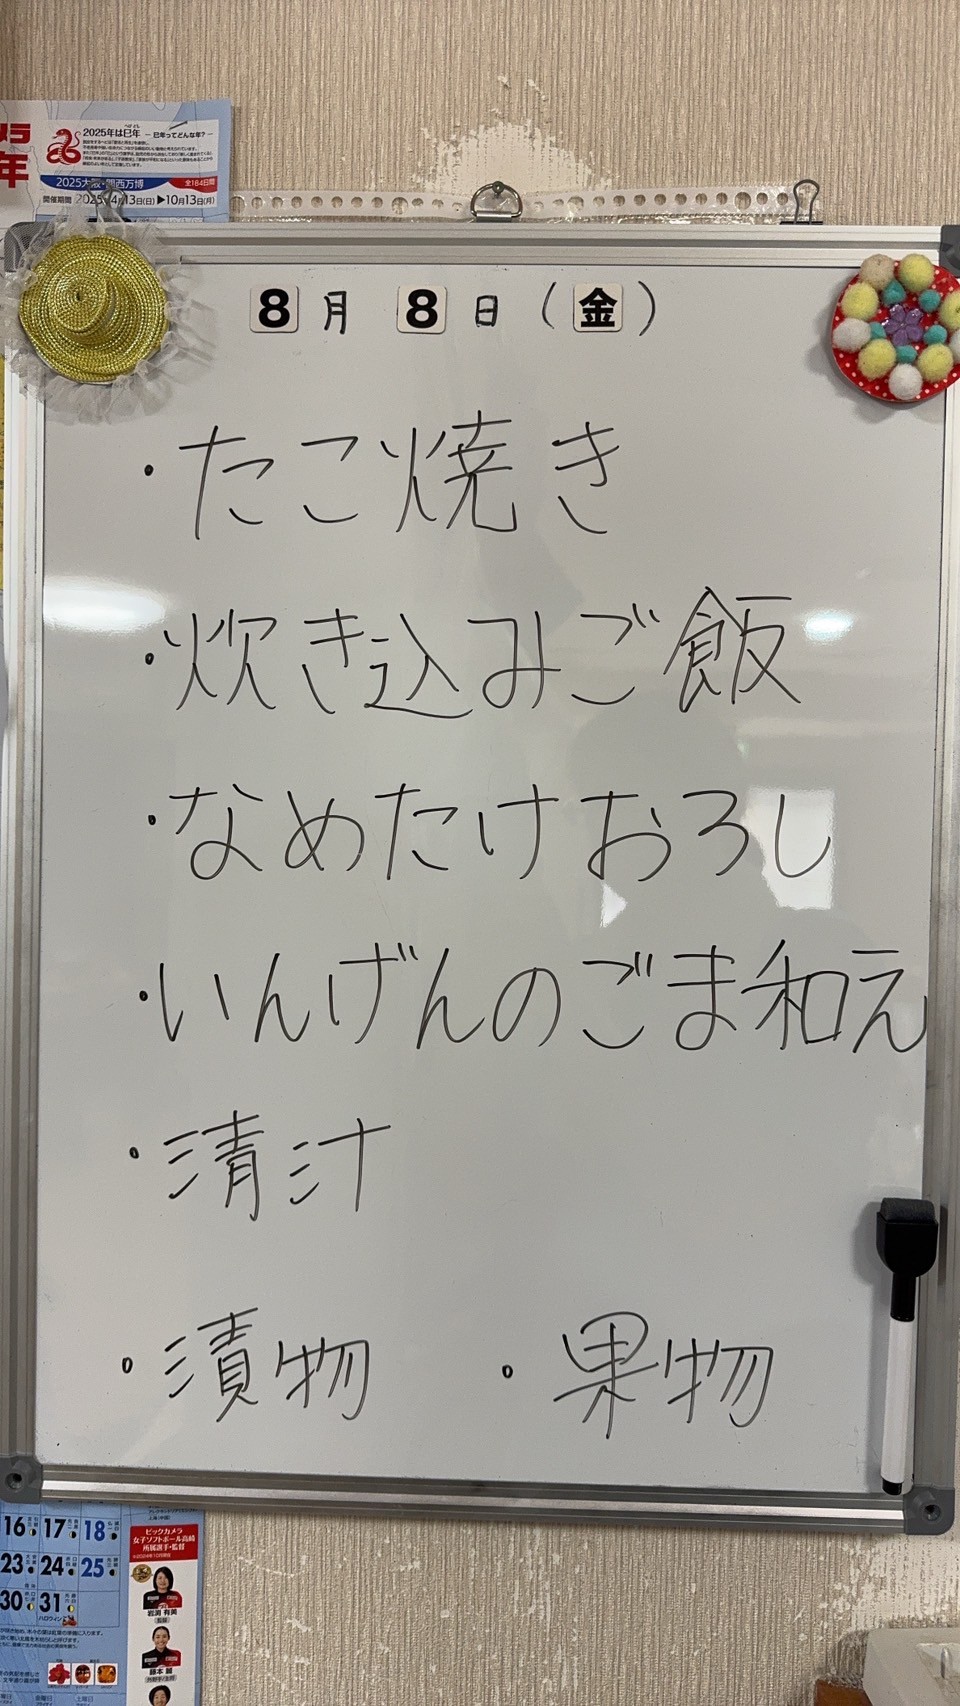 2025年は巳年 ー 巳年ってどんな年? ー
2025大阪・関西万博 全184日間
開催期間 2025年4月13日(日)▶10月13日(月)
8月8日(金)
・たこ焼き
・炊き込みご飯
・なめたけおろし
・いんげんのごま和え
・清汁
・漬物 ・果物
16 17 18
23 24 25
30 31
ハロウィン
ビックカメラ
女子ソフトボール高崎
所属選手・監督